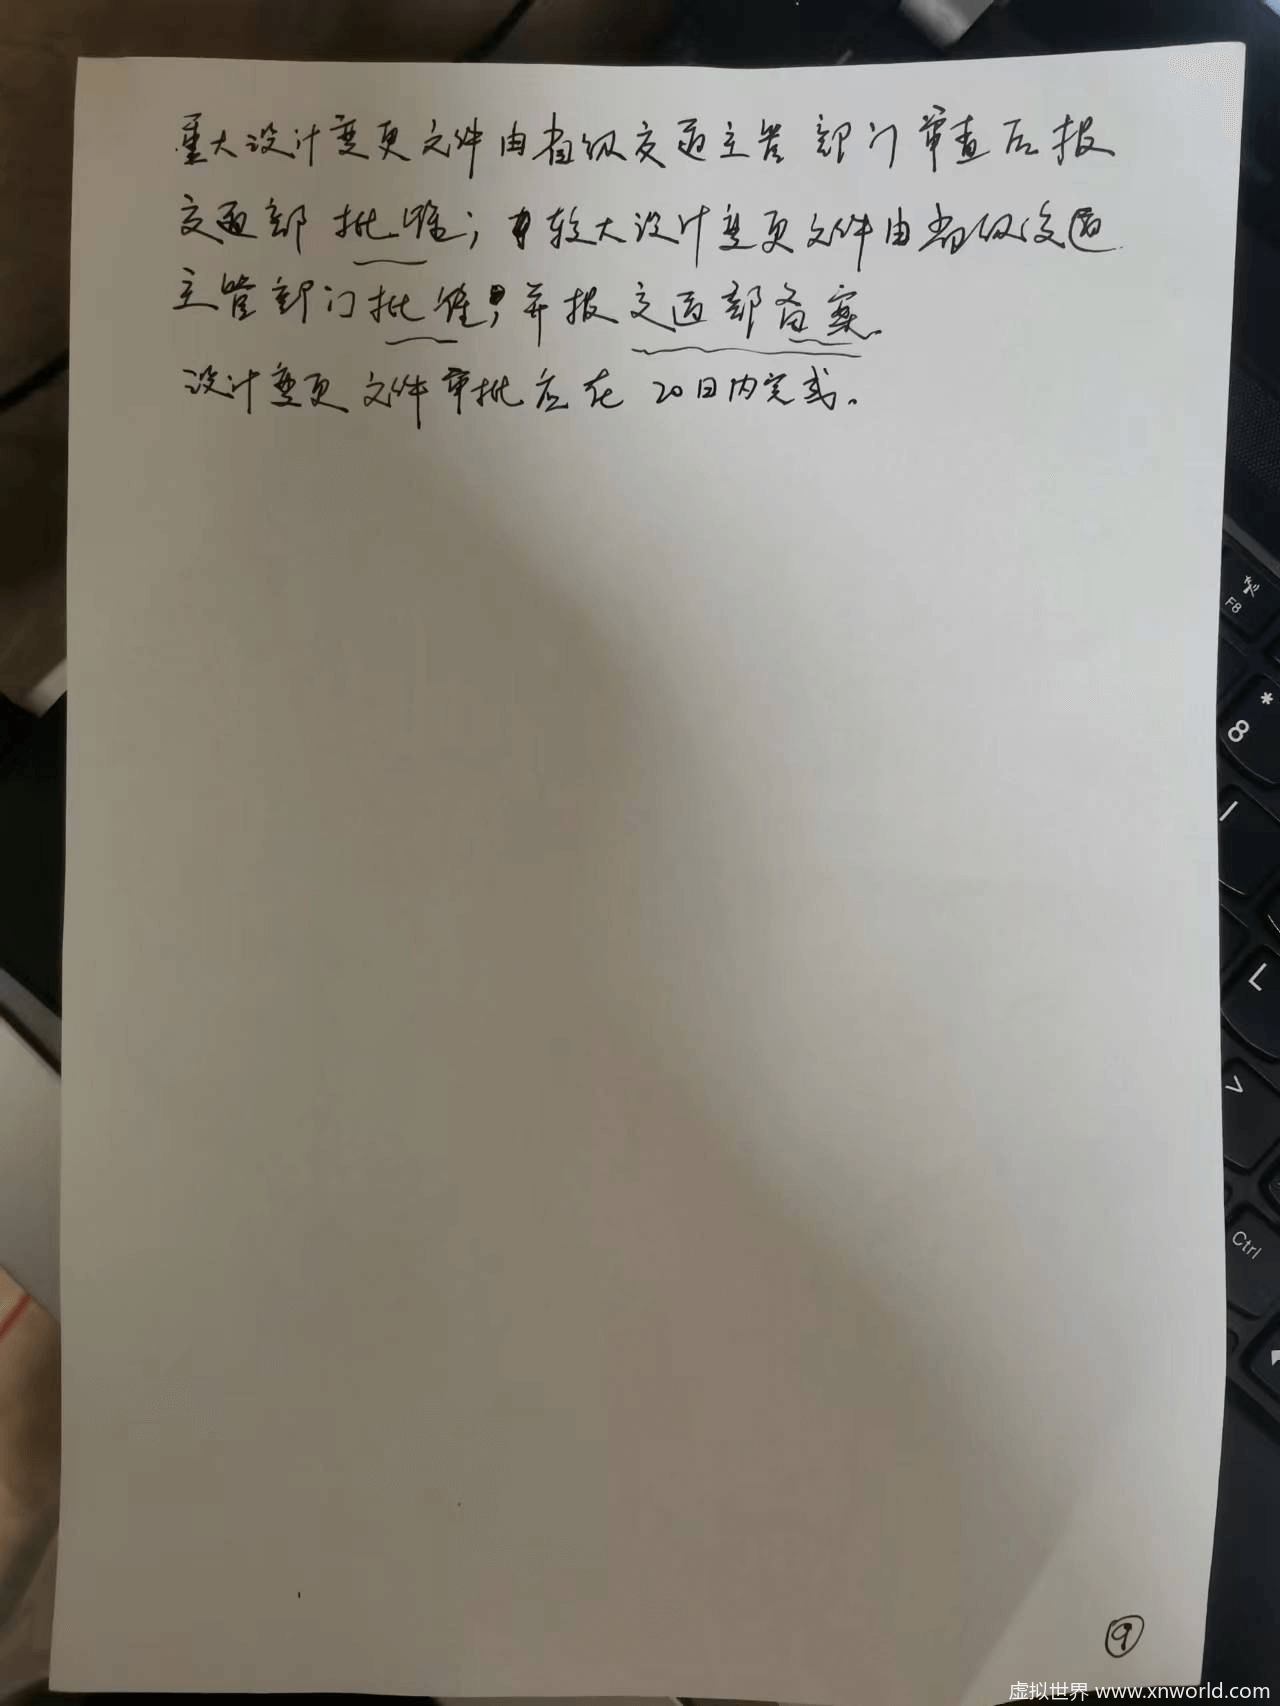 重大设计变更文件由省级交通主管部门审查后报
交通部批准；较大设计变更文件由省级交通
主管部门批准，并报交通部备案。
设计变更文件审批应在20日内完成。
F8
*
8
/
L
>
Ctrl
9
虚拟世界 www.xnworld.com